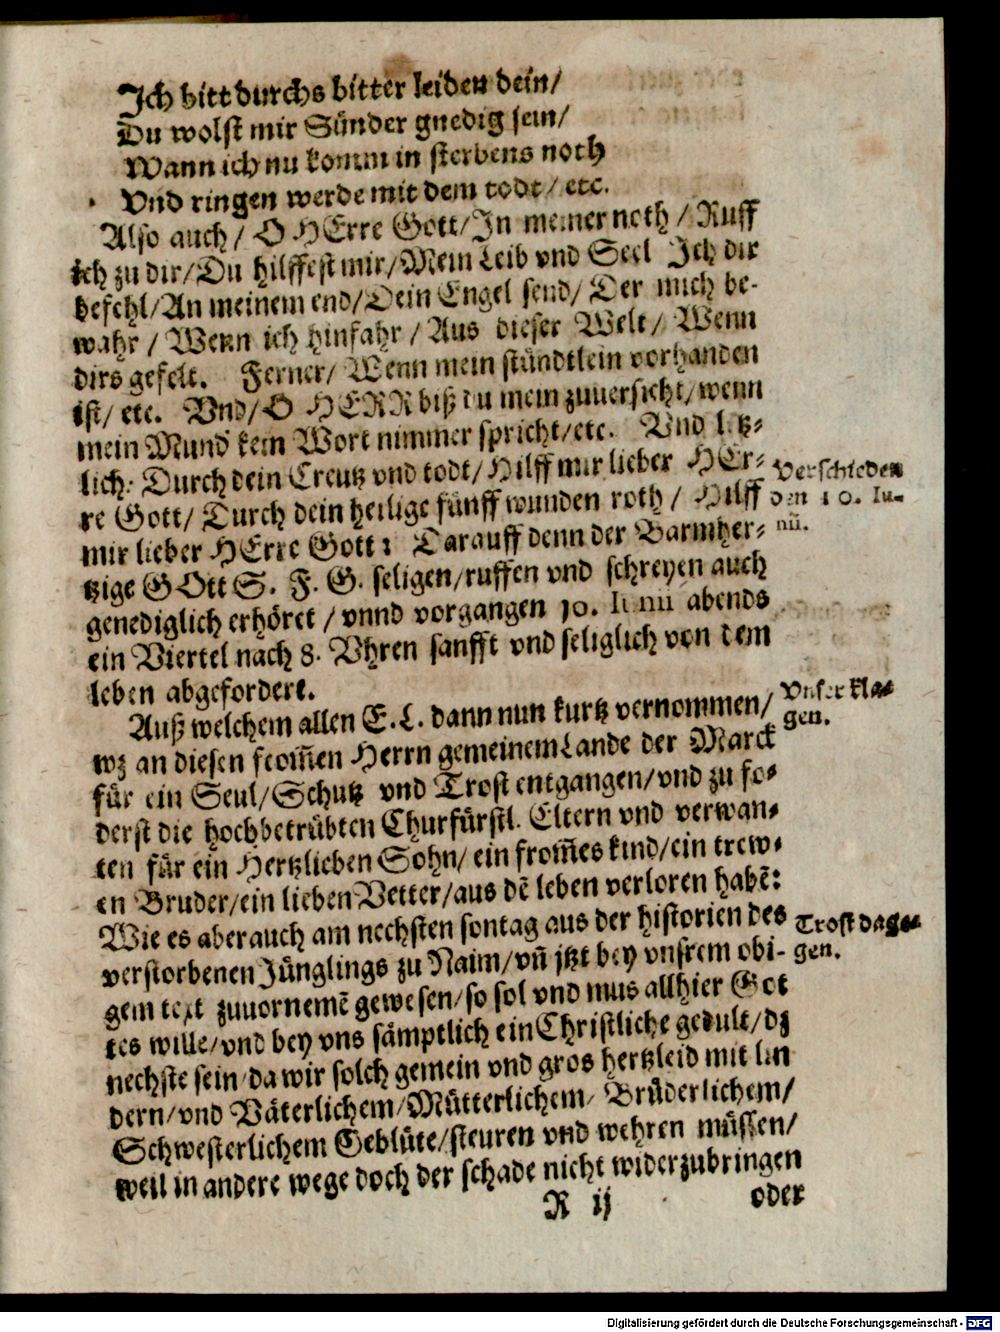 Ich bitt durchs bitter leiden dein/
Du wolst mir Sünder gnedig sein/
Wann ich nu komm in sterbens noth
Vnd ringen werde mit dem todt/ etc.
Also auch/ O HErre Gott/ In meiner noth/ Ruff
ich zu dir/ Du hilffest mir/ Mein Leib vnd Seel Ich dir
befehl/ An meinem end/ Dein Engel send/ Der mich be-
wahr/ Wenn ich hinfahr/ Aus dieser Welt/ Wenn
dirs gefelt. Ferner/ Wenn mein stündtlein vorhanden
ist/ etc. Vnd/ O HERR biß du mein zuuersicht/ wenn
mein Mund kein Wort nimmer spricht/ etc. Vnd letz-
lich: Durch dein Creutz vnd todt/ Hilff mir lieber HEr-
re Gott/ Durch dein heilige fünff wunden roth/ Hilff
mir lieber HErre Gott: Darauff denn der Barmher-
tzige GOtt S. F. G. seligen/ ruffen vnd schreyen auch
genediglich erhöret/ vnnd vorgangen 10. Iunii abends
ein Viertel nach 8. Vhren sanfft vnd seliglich von dem
leben abgefordert.
Verschieden
den 10. Iu-
nii.
Auß welchem allen E. L. dann nun kurtz vernommen/
wz an diesen from̃en Herrn gemeinem Lande der Marck
für ein Seul/ Schutz vnd Trost entgangen/ vnd zu fo-
derst die hochbetrübten Churfürstl. Eltern vnd verwan-
ten für ein Hertzlieben Sohn/ ein from̃es kind/ ein trew-
en Bruder/ ein lieben Vetter/ aus dẽ leben verloren habẽ:
Wie es aber auch am nechsten sontag aus der historien des
verstorbenen Jünglings zu Naim/ vñ jtzt bey vnsrem obi-
gem text zuuornemẽ gewesen/ so sol vnd mus allhier Got
tes wille/ vnd bey vns sämptlich ein Christliche gedult/ dz
nechste sein/ da wir solch gemein vnd gros hertzleid mit lin
dern/ vnd Väterlichem/ Mütterlichem/ Brüderlichem/
Schwesterlichem Geblüte/ steuren vnd wehren müssen/
weil in andere wege doch der schade nicht widerzubringen
Vnser kla-
gen.
Trost dage-
gen.
R ij
oder
Digitalisierung gefördert durch die Deutsche Forschungsgemeinschaft - DFG